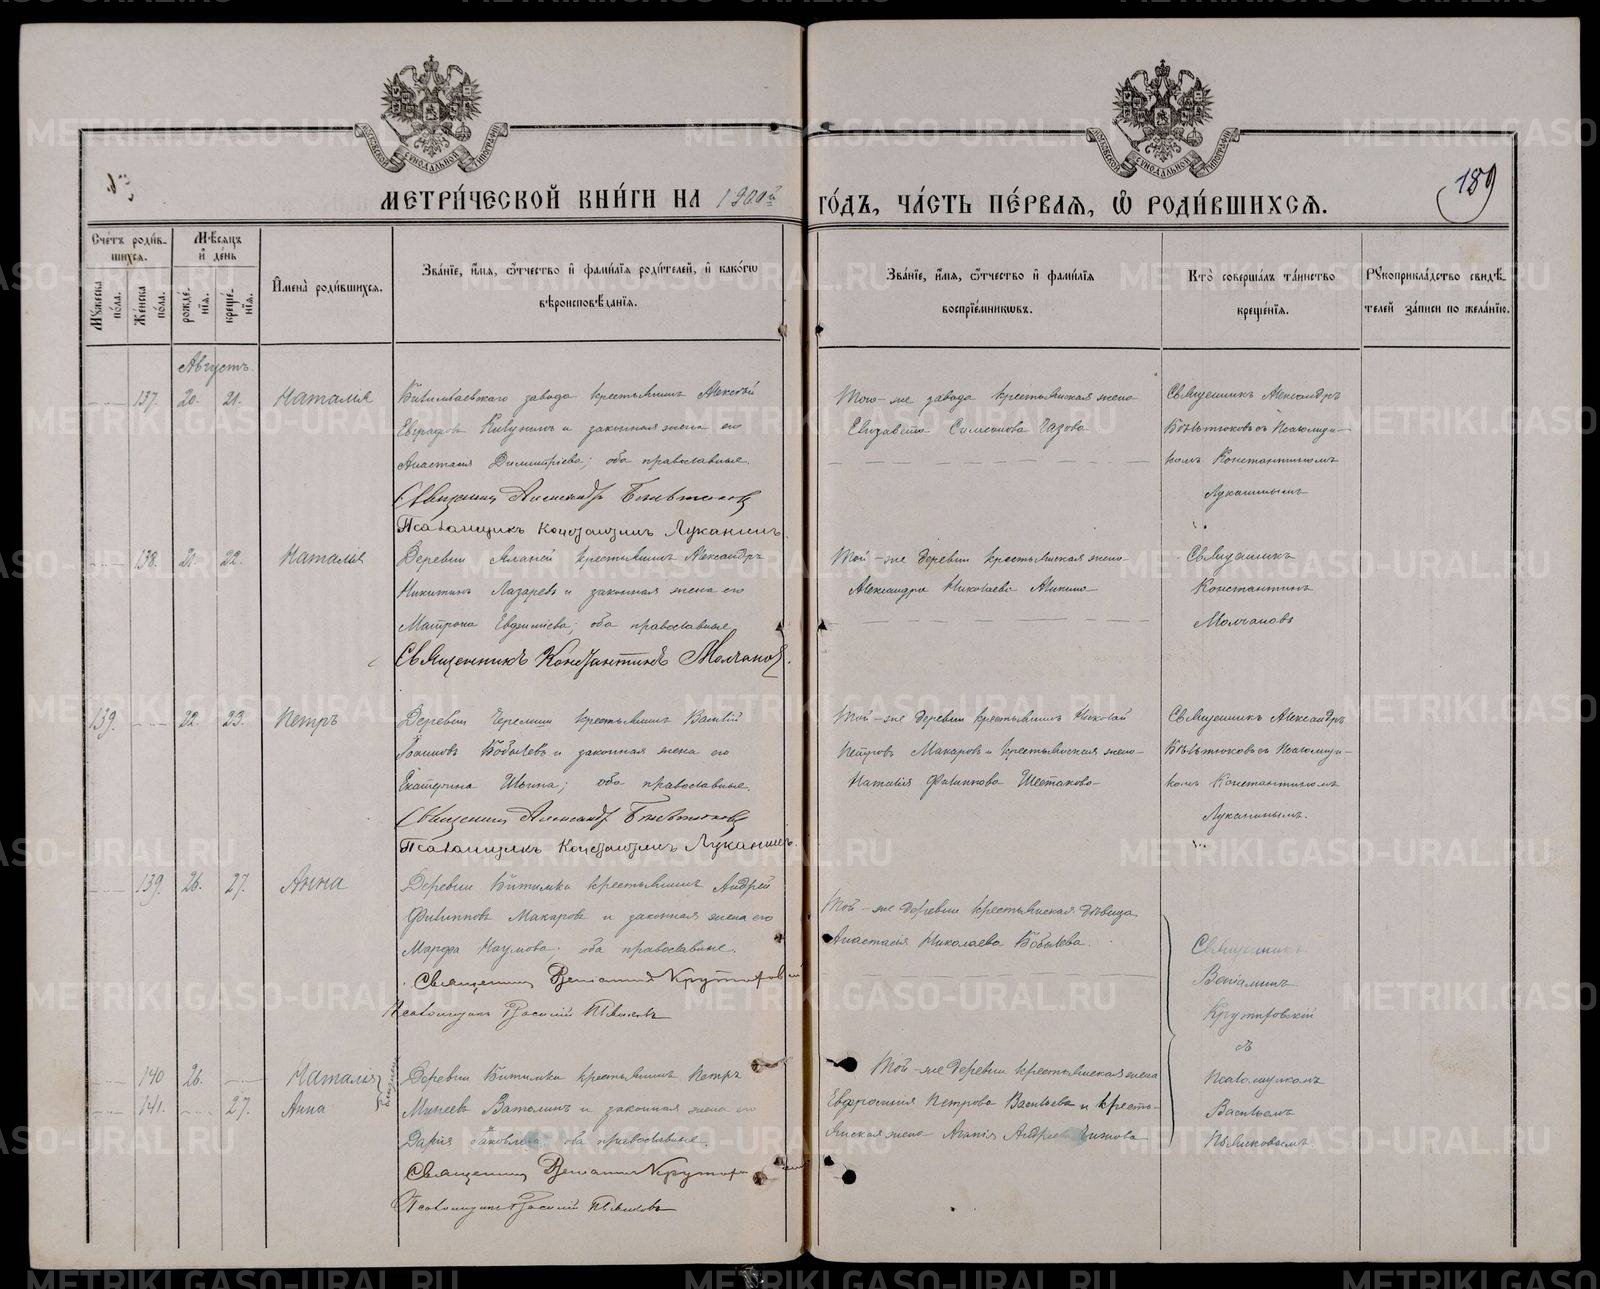 МЕТРИ́ЧЕСКОЙ КНИ́ГИ НА 1900й ГО́ДЪ, ЧА́СТЬ ПЕ́РВАЯ, Ѡ РОДИ́ВШИХСЯ.
189
МОСКОВСКОЙ СУНОДАЛЬНОЙ ТИПОГРАФІИ
МОСКОВСКОЙ СУНОДАЛЬНОЙ ТИПОГРАФІИ
Сче́тъ роди́вшихся.
Мꙋ́жеска по́ла.
Же́нска по́ла.
Мѣ́сяцъ и҆ де́нь
рожде́нїя.
креще́нїя.
И҆мена̀ роди́вшихся.
Зва́нїе, и҆́мя, ѻ҆́тчество и҆ фами́лїя роди́телей, и҆ како́гѡ
вѣроисповѣ́данїя.
Зва́нїе, и҆́мя, ѻ҆́тчество и҆ фами́лїя
воспрїе́мникѡвъ.
Кто̀ соверша́лъ та́инство
креще́нїя.
Рꙋкоприкла́дство свидѣ́телей за́писи по жела́нїю.
Августъ.
137. 20. 21. Наталія
Билимбаевскаго завода крестьянинъ Алексѣй
Евграфовъ Кивунинъ и законная жена его
Анастасія Димитріева; оба православные.
Священникъ Александръ
Псаломщикъ Константинъ Луканинъ.
Того-же завода крестьянская жена
Елизавета Симеонова
Священникъ Александръ
съ Псаломщи-
комъ Константиномъ
Луканинымъ
138. 21. 22. Наталія
Деревни крестьянинъ Александръ
Никитинъ Лазаревъ и законная жена его
Матрона Евфиміева; оба православные
Священникъ Константинъ Молчановъ.
Той-же деревни крестьянская жена
Александра Николаева
Священникъ
Константинъ
Молчановъ
139. 22. 23. Петръ
Деревни Черемши крестьянинъ Василій
Іоакимовъ Бобылевъ и законная жена его
Екатерина Ильина; оба православные.
Священникъ Александръ
Псаломщикъ Константинъ Луканинъ.
Той-же деревни крестьянинъ Николай
Петровъ Макаровъ и крестьянская жена
Наталія Филиппова Шестакова
Священникъ Александръ
съ Псаломщи-
комъ Константиномъ
Луканинымъ.
139. 26. 27. Анна
Деревни Битимка крестьянинъ Андрей
Филипповъ Макаровъ и законная жена его
Марфа Наумова; оба православные.
Священникъ Веніаминъ Крутиховскій
Псаломщикъ Василій
Той-же деревни крестьянская дѣвица
Анастасія Николаева Бобылева.
Священникъ
Веніаминъ
съ
Псаломщикомъ
Васильемъ
140 26. Наталья
141. 27. Анна
близнецы
Деревни Битимка крестьянинъ Петръ
Минеевъ Ваталинъ и законная жена его
Дарія Іаковлева, оба православные.
Священникъ Веніаминъ
Псаломщикъ Василій
Той-же деревни крестьянская жена
Евфросинія Петрова Васильева и кресть-
янская жена Агапія Андреева
METRIKI.GASO-URAL.RU